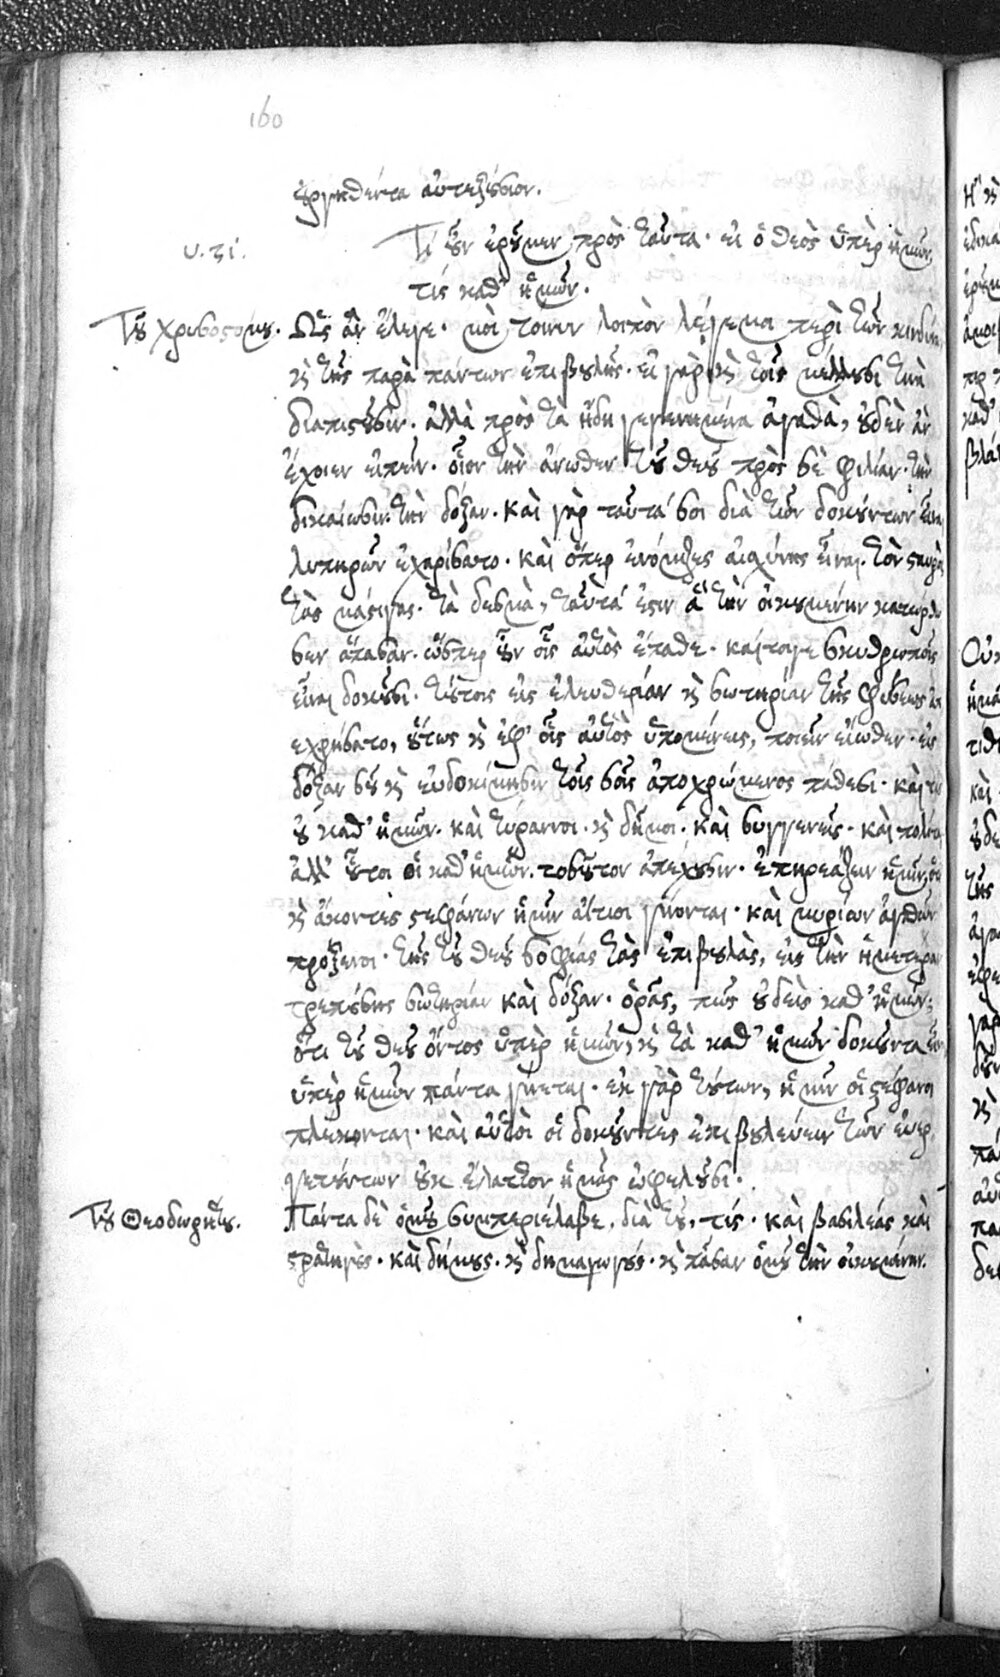 160
ἐργηθέντα αὐτεξούσιον.
υ. ϛί.
Τί οὖν ἐροῦμεν πρὸς ταῦτα· εἰ ὁ θεὸς ὑπὲρ ἡμῶν,
τίς καθ' ἡμῶν.
Τοῦ Χρυσοστόμου. Ὡς ἂν ἔλεγε· μὴ τοίνυν λοιπὸν λέγε μοι περὶ τῶν κινδύνων,
καὶ τῆς παρὰ πάντων ἐπιβουλῆς· εἰ γὰρ καὶ τοῖς μέλλουσί τινὲ
διαπιστοῦσιν· ἀλλὰ πρὸς τὰ ἤδη γεγενημένα ἀγαθὰ, οὐδὲν ἂν
ἔχοιεν εἰπεῖν· οἷον τὴν ἄνωθεν τοῦ θεοῦ πρὸς σὲ φιλίαν· τὴν
δικαίωσιν· τὴν δόξαν· καὶ γὰρ ταῦτά σοι διὰ τῶν δοκούντων εἶναι
λυπηρῶν ἐχαρίσατο· καὶ ὅπερ ἐνόμιζες αἰσχύνης εἶναι· τὸν σταυρὸν,
τὰς μάστιγας· τὰ δεσμὰ, ταῦτά ἐστιν ἃ τὴν οἰκουμένην κατώρθω
σεν ἅπασαν· ὥσπερ οὖν οἷς αὐτὸς ἔπαθε· καίτοιγε σκυθρωποῖς
εἶναι δοκοῦσι· τούτοις εἰς ἐλευθερίαν καὶ σωτηρίαν τῆς φύσεως
ἐχρήσατο, οὕτως καὶ ἐφ' οἷς αὐτὸς ὑπομένεις, ποιεῖν εἴωθεν· εἰς
δόξαν σου καὶ εὐδοκίμησιν τοῖς σοῖς ἀποχρώμενος πάθεσι· καὶ τίς
οὐ καθ' ἡμῶν· καὶ τύραννοι· καὶ δῆμοι· καὶ συγγενεῖς· καὶ πολῖται
ἀλλ' οὗτοι οἱ καθ' ἡμῶν. τοσοῦτον ἀπέχουσιν· ἐπηρεάζειν ἡμῖν, ὅτι
καὶ ἄκοντες στεφάνων ἡμῖν αἴτιοι γίνονται· καὶ μυρίων ἀγαθῶν
πρόξενοι· τῆς τοῦ θεοῦ σοφίας τὰς ἐπιβουλὰς, εἰς τὴν ἡμετέραν
τρεπούσης σωτηρίαν καὶ δόξαν· ὁρᾷς, πῶς οὐδεὶς καθ' ἡμῶν;
ὅτι τοῦ θεοῦ ὄντος ὑπὲρ ἡμῶν, καὶ τὰ καθ' ἡμῶν δοκοῦντα εἶναι
ὑπὲρ ἡμῶν πάντα γίνεται· ἐκ γὰρ τούτων, ἡμῖν οἱ στέφανοι
πλέκονται· καὶ αὐτοὶ οἱ δοκοῦντες ἐπιβουλεύειν τῶν εὐερ
γετούντων οὐκ ἔλαττον ἡμᾶς ὠφελοῦσι.
Τοῦ Θεοδωρήτου. Πάντα δὲ ὁμοῦ συμπεριέλαβε, διὰ τοῦ, τίς· καὶ βασιλέας καὶ
στρατηγοὺς· καὶ δήμους· καὶ δημαγωγοὺς· καὶ πᾶσαν ὁμοῦ τὴν οἰκουμένην.